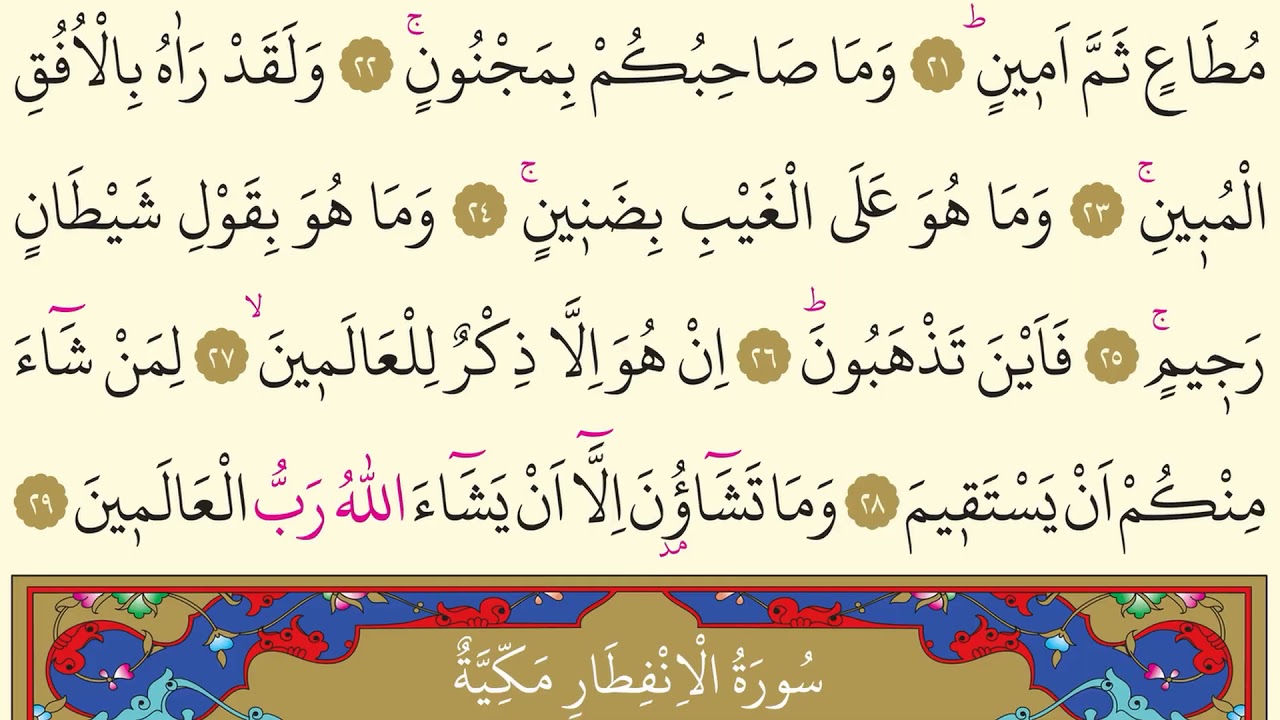 مُطَاعٍ ثَمَّ اَم۪ينٍۜ ﴿٢١﴾ وَمَا صَاحِبُكُمْ بِمَجْنُونٍۚ ﴿٢٢﴾ وَلَقَدْ رَاٰهُ بِالْاُفُقِ
الْمُب۪ينِۚ ﴿٢٣﴾ وَمَا هُوَ عَلَى الْغَيْبِ بِضَن۪ينٍۚ ﴿٢٤﴾ وَمَا هُوَ بِقَوْلِ شَيْطَانٍ
رَج۪يمٍۚ ﴿٢٥﴾ فَاَيْنَ تَذْهَبُونَۜ ﴿٢٦﴾ اِنْ هُوَ اِلَّا ذِكْرٌ لِلْعَالَم۪ينَۙ ﴿٢٧﴾ لِمَنْ شَٓاءَ
مِنْكُمْ اَنْ يَسْتَق۪يمَ ﴿٢٨﴾ وَمَا تَشَٓاؤُ۫نَ اِلَّٓا اَنْ يَشَٓاءَ اللّٰهُ رَبُّ الْعَالَم۪ينَ ﴿٢٩﴾
مد
سُورَةُ الْاِنْفِطَارِ مَكِّيَّةٌ